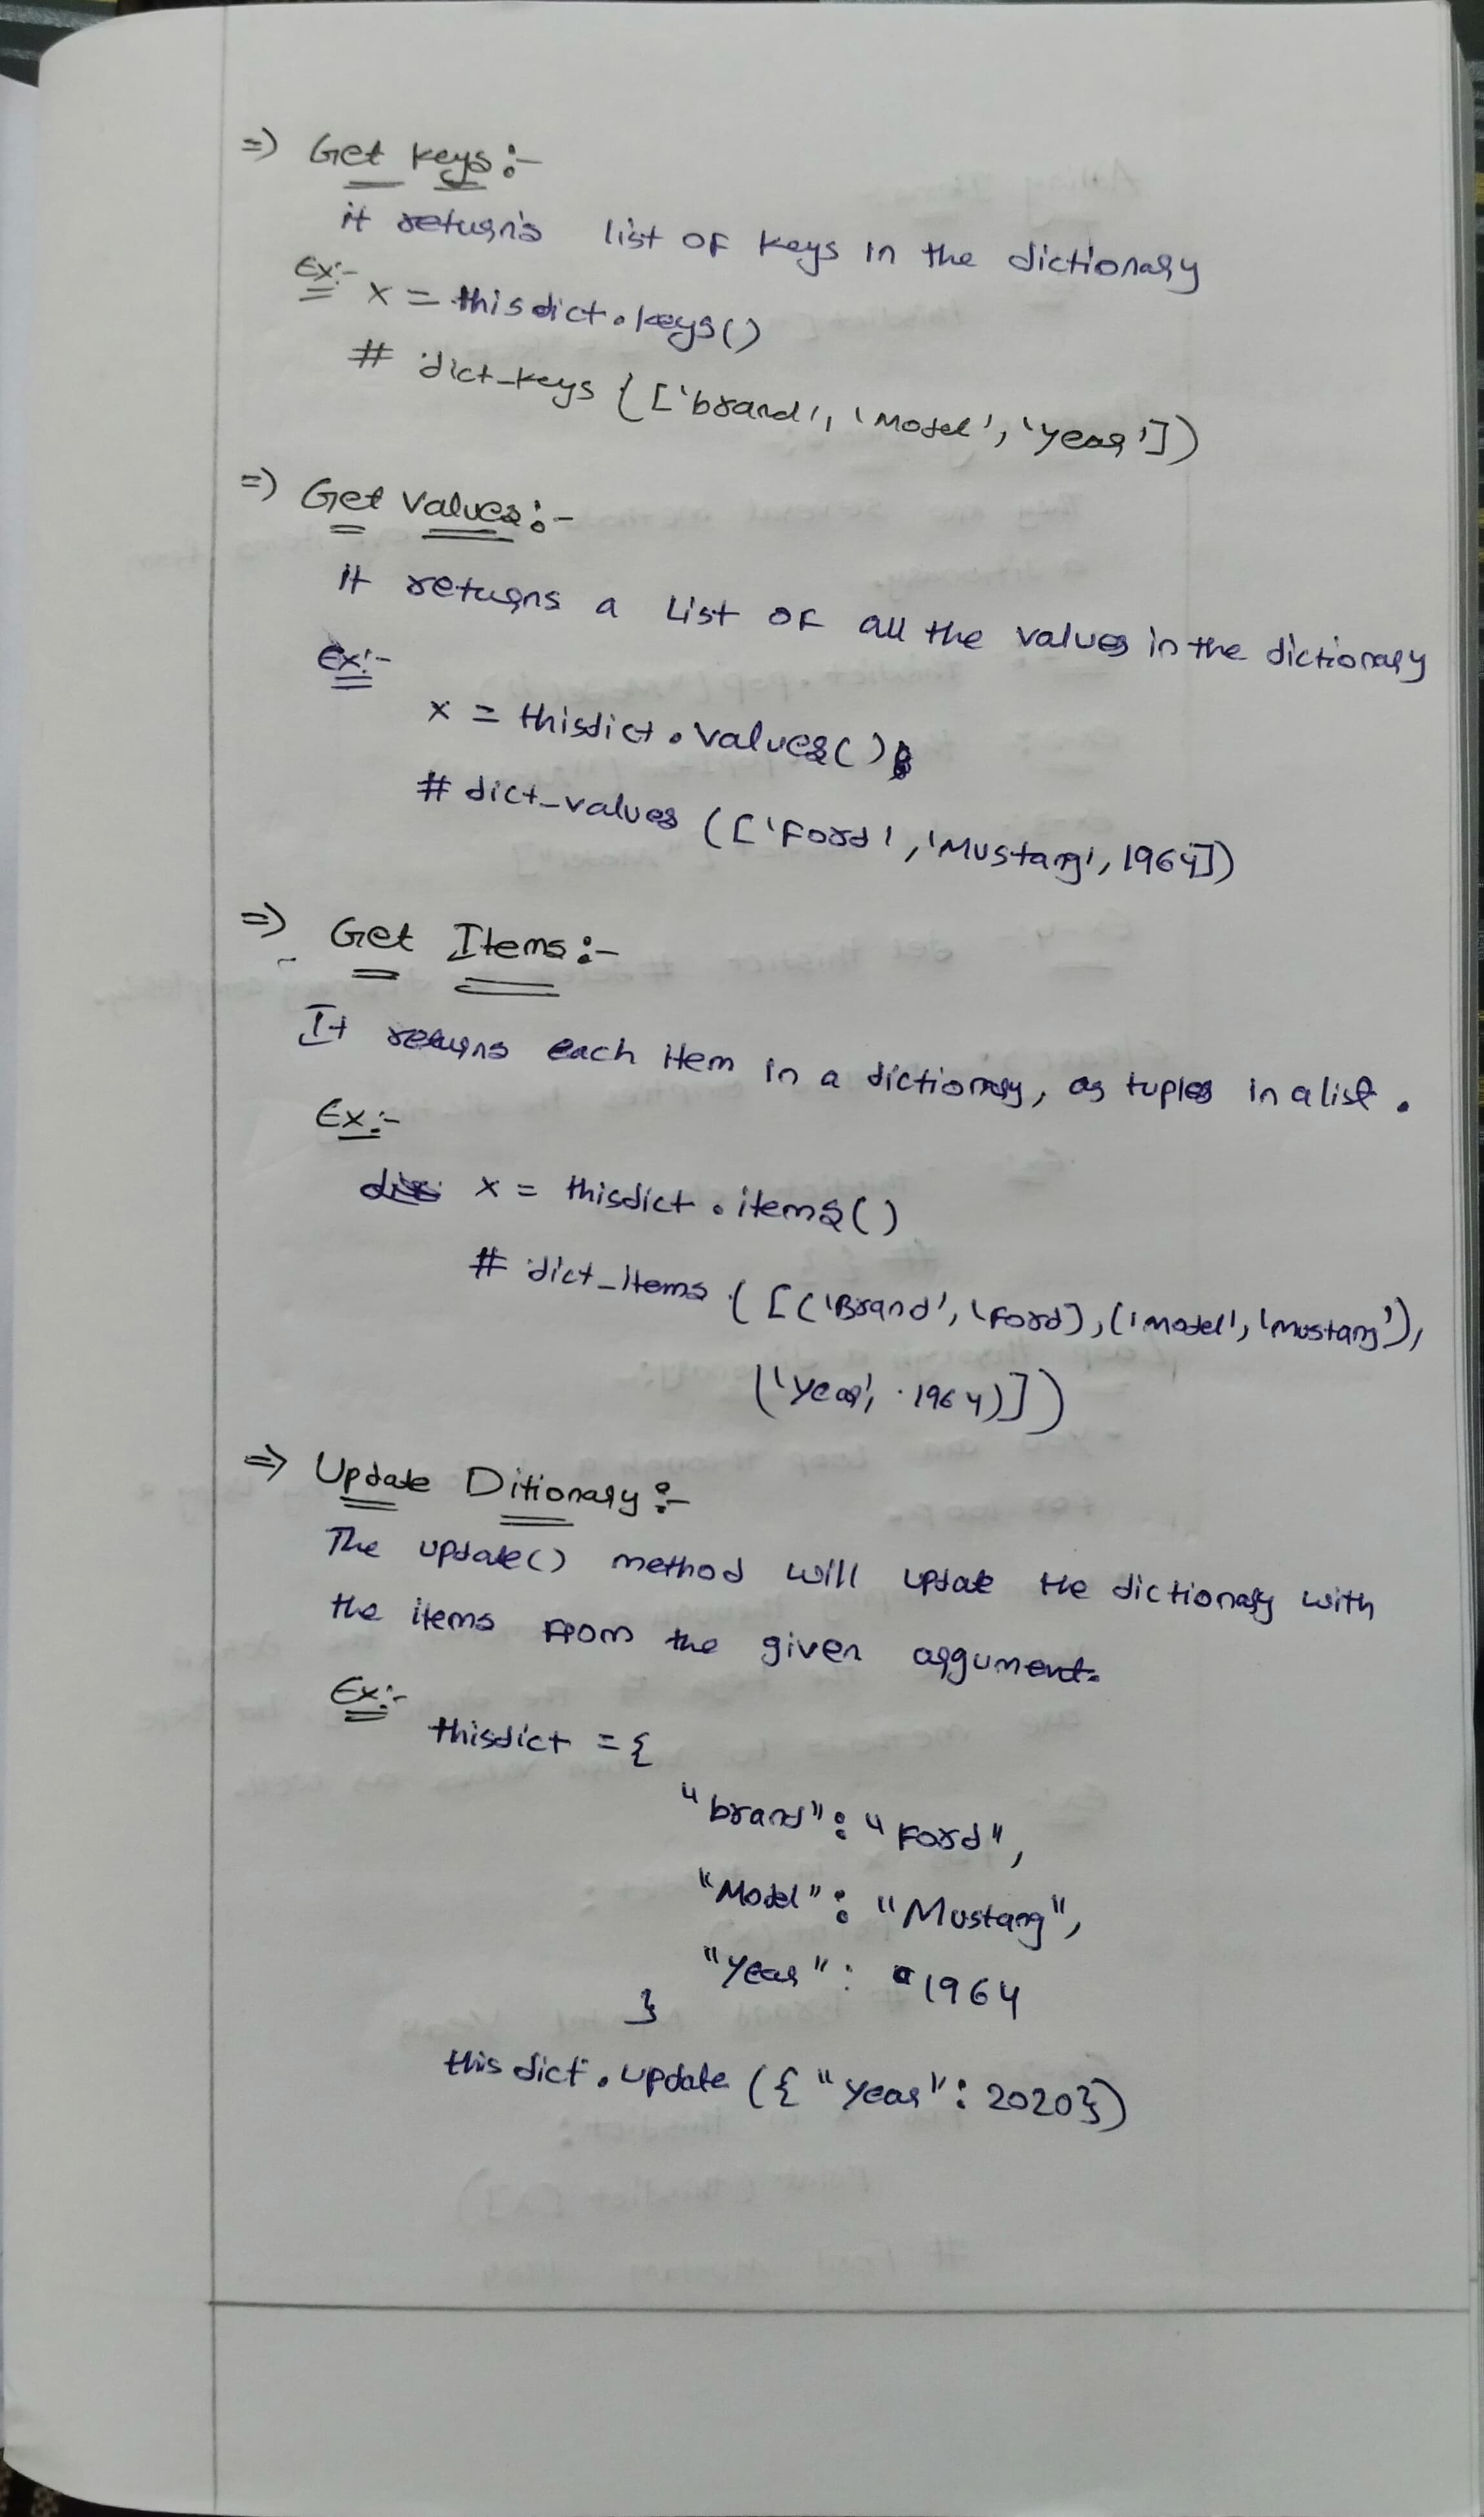 => Get keys:-
it return's list of keys in the dictionary
Ex:- x = thisdict.keys()
# dict_keys {['brand', 'Model', 'year'])
=> Get Values:-
it returns a List of all the values in the dictionary
Ex:-
x = thisdict.values()
# dict_values (['Ford', 'Mustang', 1964])
=> Get Items:-
It returns each item in a dictionary, as tuples in a list.
Ex:-
x = thisdict.items()
# dict_items ([('Brand', 'Ford), ('model', 'mustang'),
('year', 1964)])
=> Update Ditionary:-
The update() method will update the dictionary with
the items from the given argument.
Ex:-
thisdict = {
"brand": "Ford",
"Model": "Mustang",
"year": 1964
}
thisdict.update ({"year": 2020})